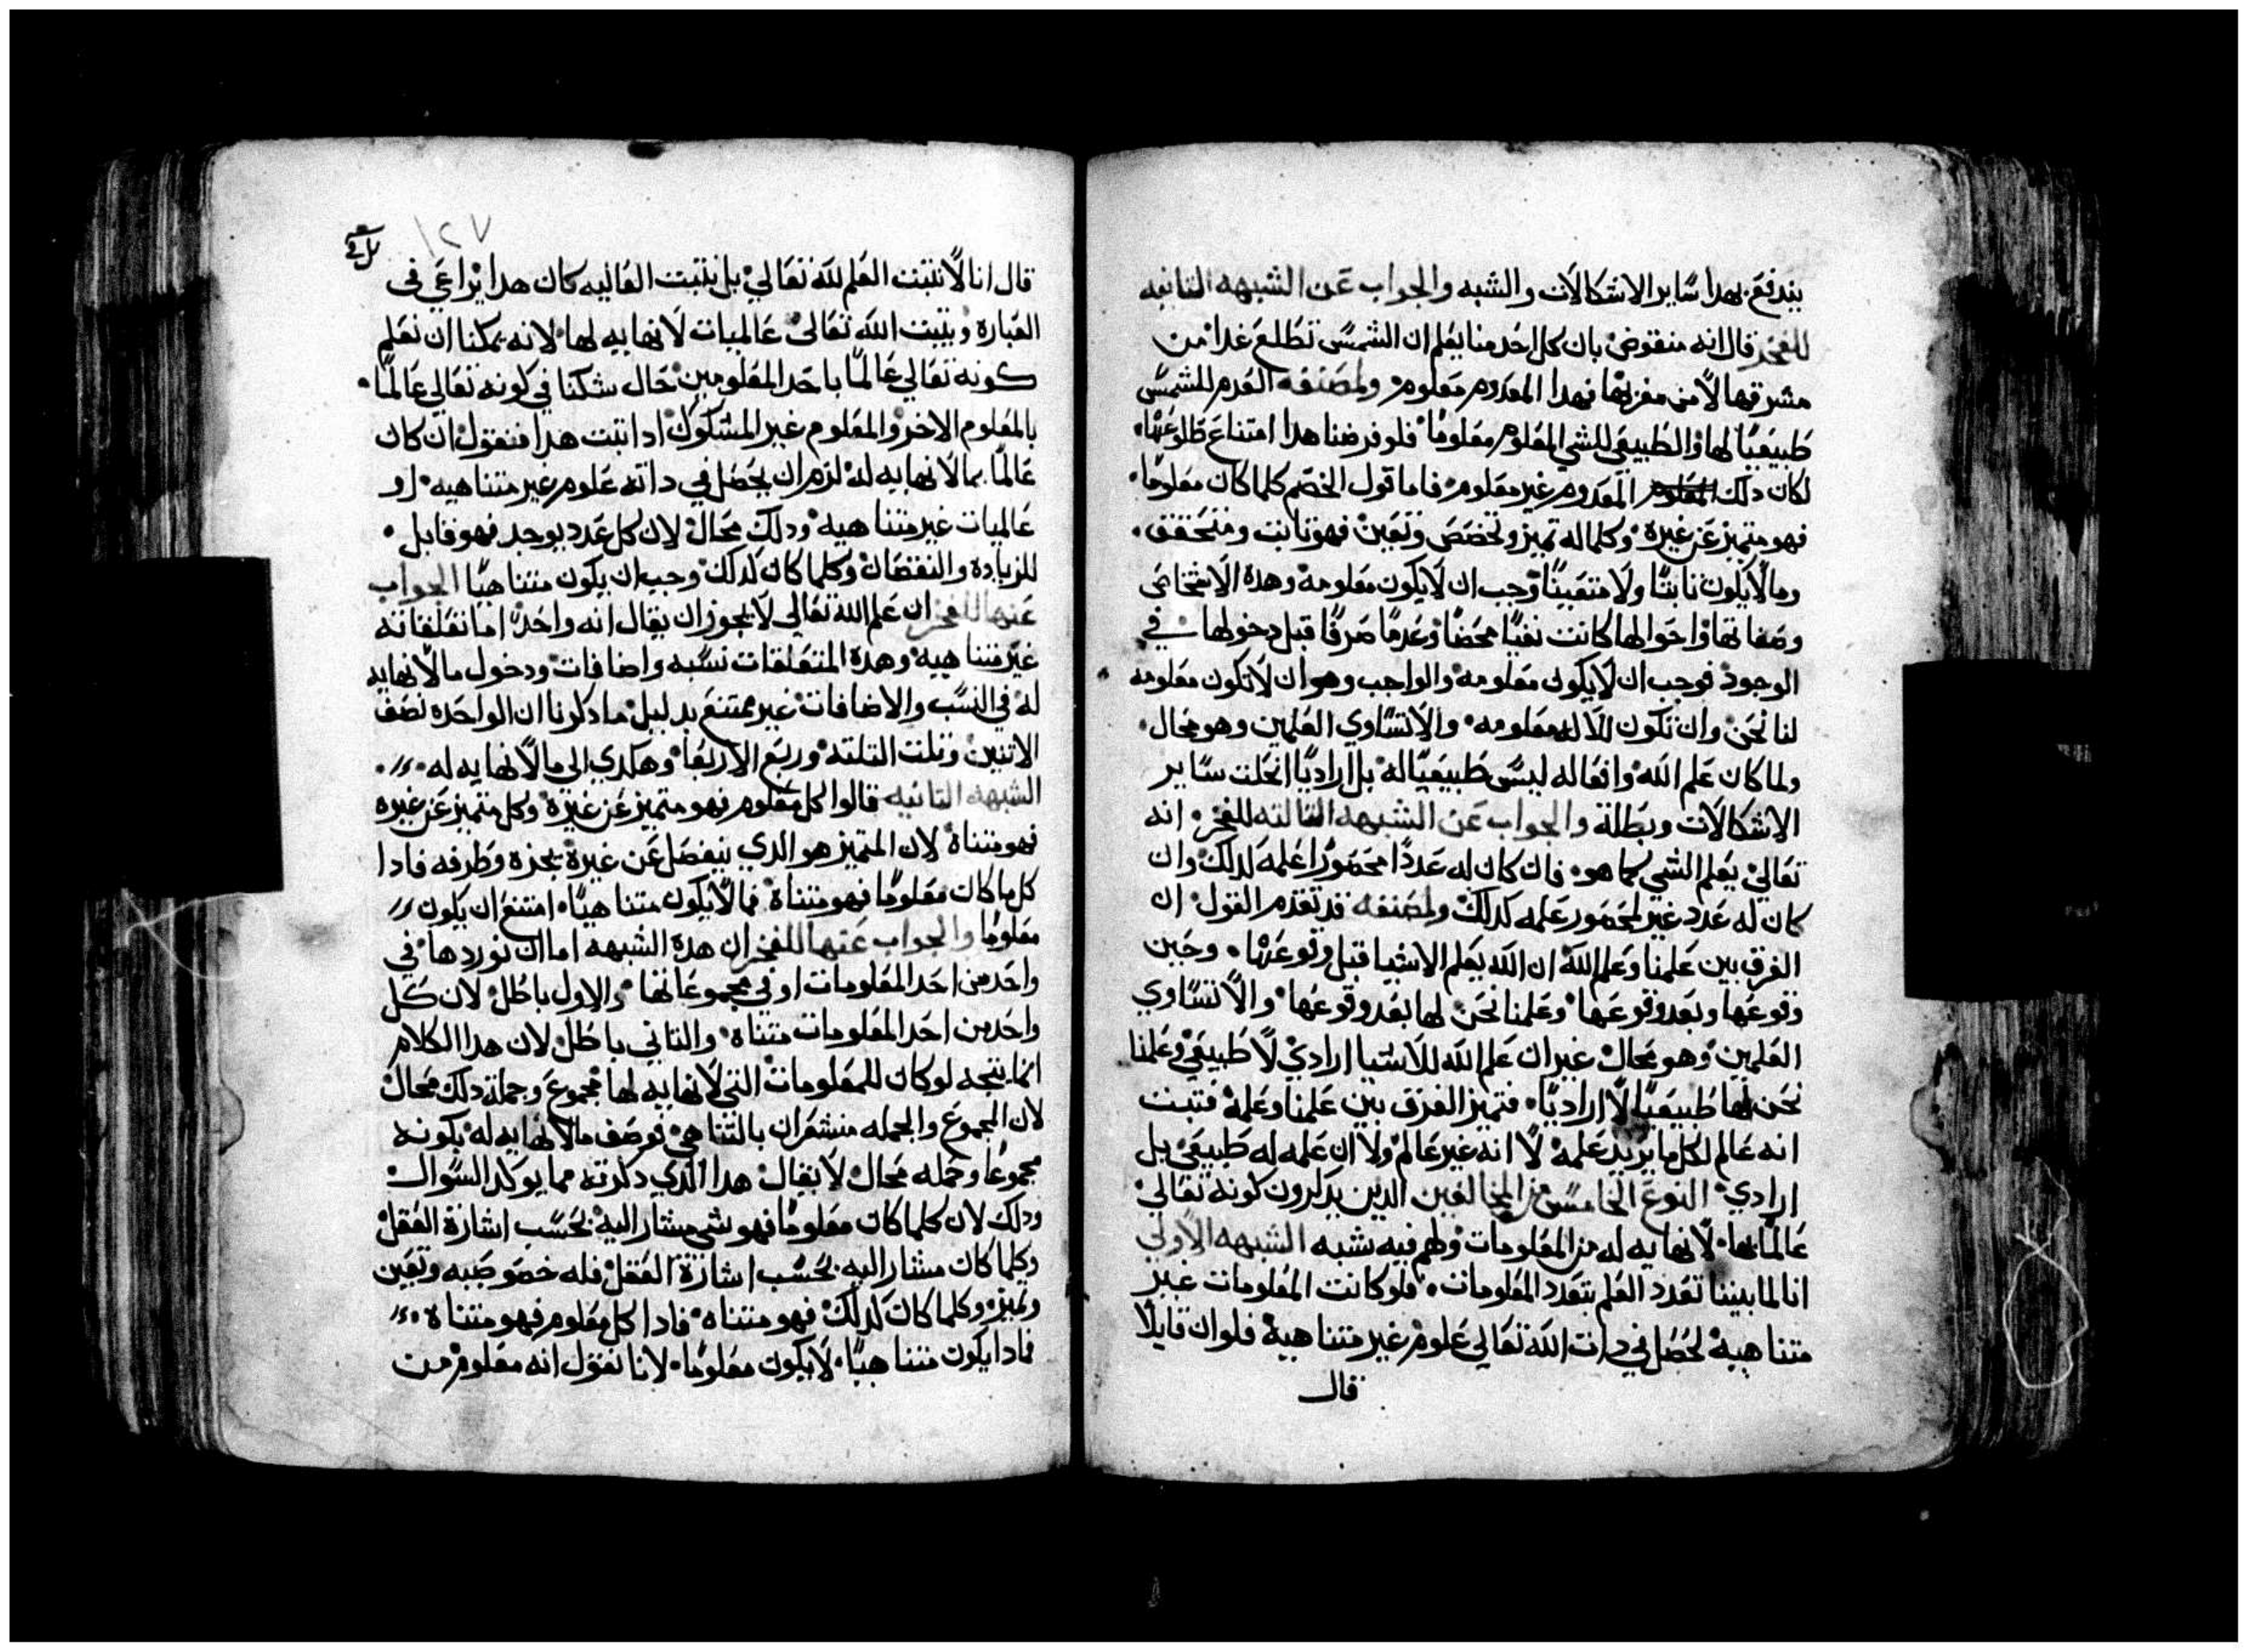 يندفع بهدا ساير الاشكالات والشبه والجواب عن الشبهه التانيه
للفخر قال انه منقوض بان كل احد منا يعلم ان الشمس تطلع غدا من
مشرقها لا من مغربها فهدا المعدوم معلوم ولمصنفه العدم للشمس
طبيعيا لها والطبيعي للشي المعلوم معلوما فلو فرضنا هدا امتناع طلوعها
لكان دلك المعدوم غير معلوم فاما قول الخصم كلما كان معلوما
فهو متميز عن غيره وكلما له تميز وتخصص وتعين فهو تابت ومتحقق
وما لا يكون تابتا ولا متعينا وجب ان لا يكون معلومه وهده الاشخاص
وصفاتها واحوالها كانت نفيا محضا وعدما صرفا قبل دخولها في
الوجود فوجب ان لا يكون معلومه والواجب وهو ان لا تكون معلومه
لنا نحن وان تكون للاله معلومه والا تساوي العلمين وهو محال
ولما كان علم الله وافعاله ليس طبيعيا له بل اراديا انحلت ساير
الاشكالات وبطلة والجواب عن الشبهه التالته للفخر انه
تعالي يعلم الشي كما هو فان كان له عددا محصورا علمه لدلك وان
كان له عدد غير محصور علمه كدلك ولمصنفه قد تقدم القول ان
الفرق بين علمنا وعلم الله ان الله يعلم الاشيا قبل وقوعها وحين
وقوعها وبعد وقوعها وعلمنا نحن لها بعد وقوعها والا تساوي
العلمين وهو محال غير ان علم الله للاشيا ارادي لا طبيعي وعلمنا
نحن لها طبيعيا لا اراديا فتميز الفرق بين علمنا وعلمه فتبت
انه عالم لكل ما يريد علمه لا انه غير عالم ولا ان علمه له طبيعي بل
ارادي النوع الخامس من المخالفين الدين يدكرون كونه تعالي
عالما بما لا نهايه له من المعلومات ولهم فيه شبه الشبهه الاولي
انا لما بيننا تعدد العلم بتعدد المعلومات فلو كانت المعلومات غير
متناهيه لحصل في دات الله تعالي علوم غير متناهية فلو ان قايلا
قال
١٢٧
قال انا لا نتبت العلم لله تعالي بل نتبت العاليه كان هدا يراعي في
العباره ونتبت الله تعالي عالميات لا نهايه لها لانه يمكنا ان نعلم
كونه تعالي عالما باحد المعلومين حال شكنا في كونه تعالي عالما
بالمعلوم الاخر والمعلوم غير المشكوك ادا تبت هدا فنقول ان كان
عالما بما لا نهايه له لزم ان يحصل في داته علوم غير متناهيه او
عالميات غير متناهيه ودلك محال لان كل عدد يوجد فهو قابل
للزيادة والنقصان وكلما كان لدلك وجب ان يكون متناهيا الجواب
عنها للفخر ان علم الله تعالي لا يجوز ان يقال انه واحد اما تعلقاته
غير متناهيه وهده المتعلقات نسبه واضافات ودخول ما لا نهايه
له في النسب والاضافات غير ممتنع بدليل ما دكرنا ان الواحده نصف
الاتنين وتلت التلته وربع الاربعا وهكدي الي ما لا نهايه له
الشبهه التانيه قالوا كل معلوم فهو متميز عن غيره وكل متميز عن غيره
فهو متناه لان المتميز هو الدي ينفصل عن غيره بحده وطرفه فادا
كل ما كان معلوما فهو متناه فما لا يكون متناهيا امتنع ان يكون
معلوما والجواب عنها للفخر ان هده الشبهه اما ان نوردها في
واحد من احد المعلومات او في مجموعاتها والاول باطل لان كل
واحد من احد المعلومات متناه والتاني باطل لان هدا الكلام
انما يتجه لو كان للمعلومات التي لا نهايه لها مجموع وجملة دلك محال
لان المجموع والجمله منشعران بالتناهي فوصف ما لا نهايه له بكونه
مجموعا وجمله محال لا يقال هدا الدي دكرته مما يوكد السوال
ودلك لان كلما كان معلوما فهو شي مشار اليه بحسب اشارة العقل
وكلما كان مشار اليه بحسب اشارة العقل فله خصوصيه وتعين
وتميز وكلما كان لدلك فهو متناه فادا كل معلوم فهو متناه
فما دا يكون متناهيا لا يكون معلوما لانا نقول انه معلوم من